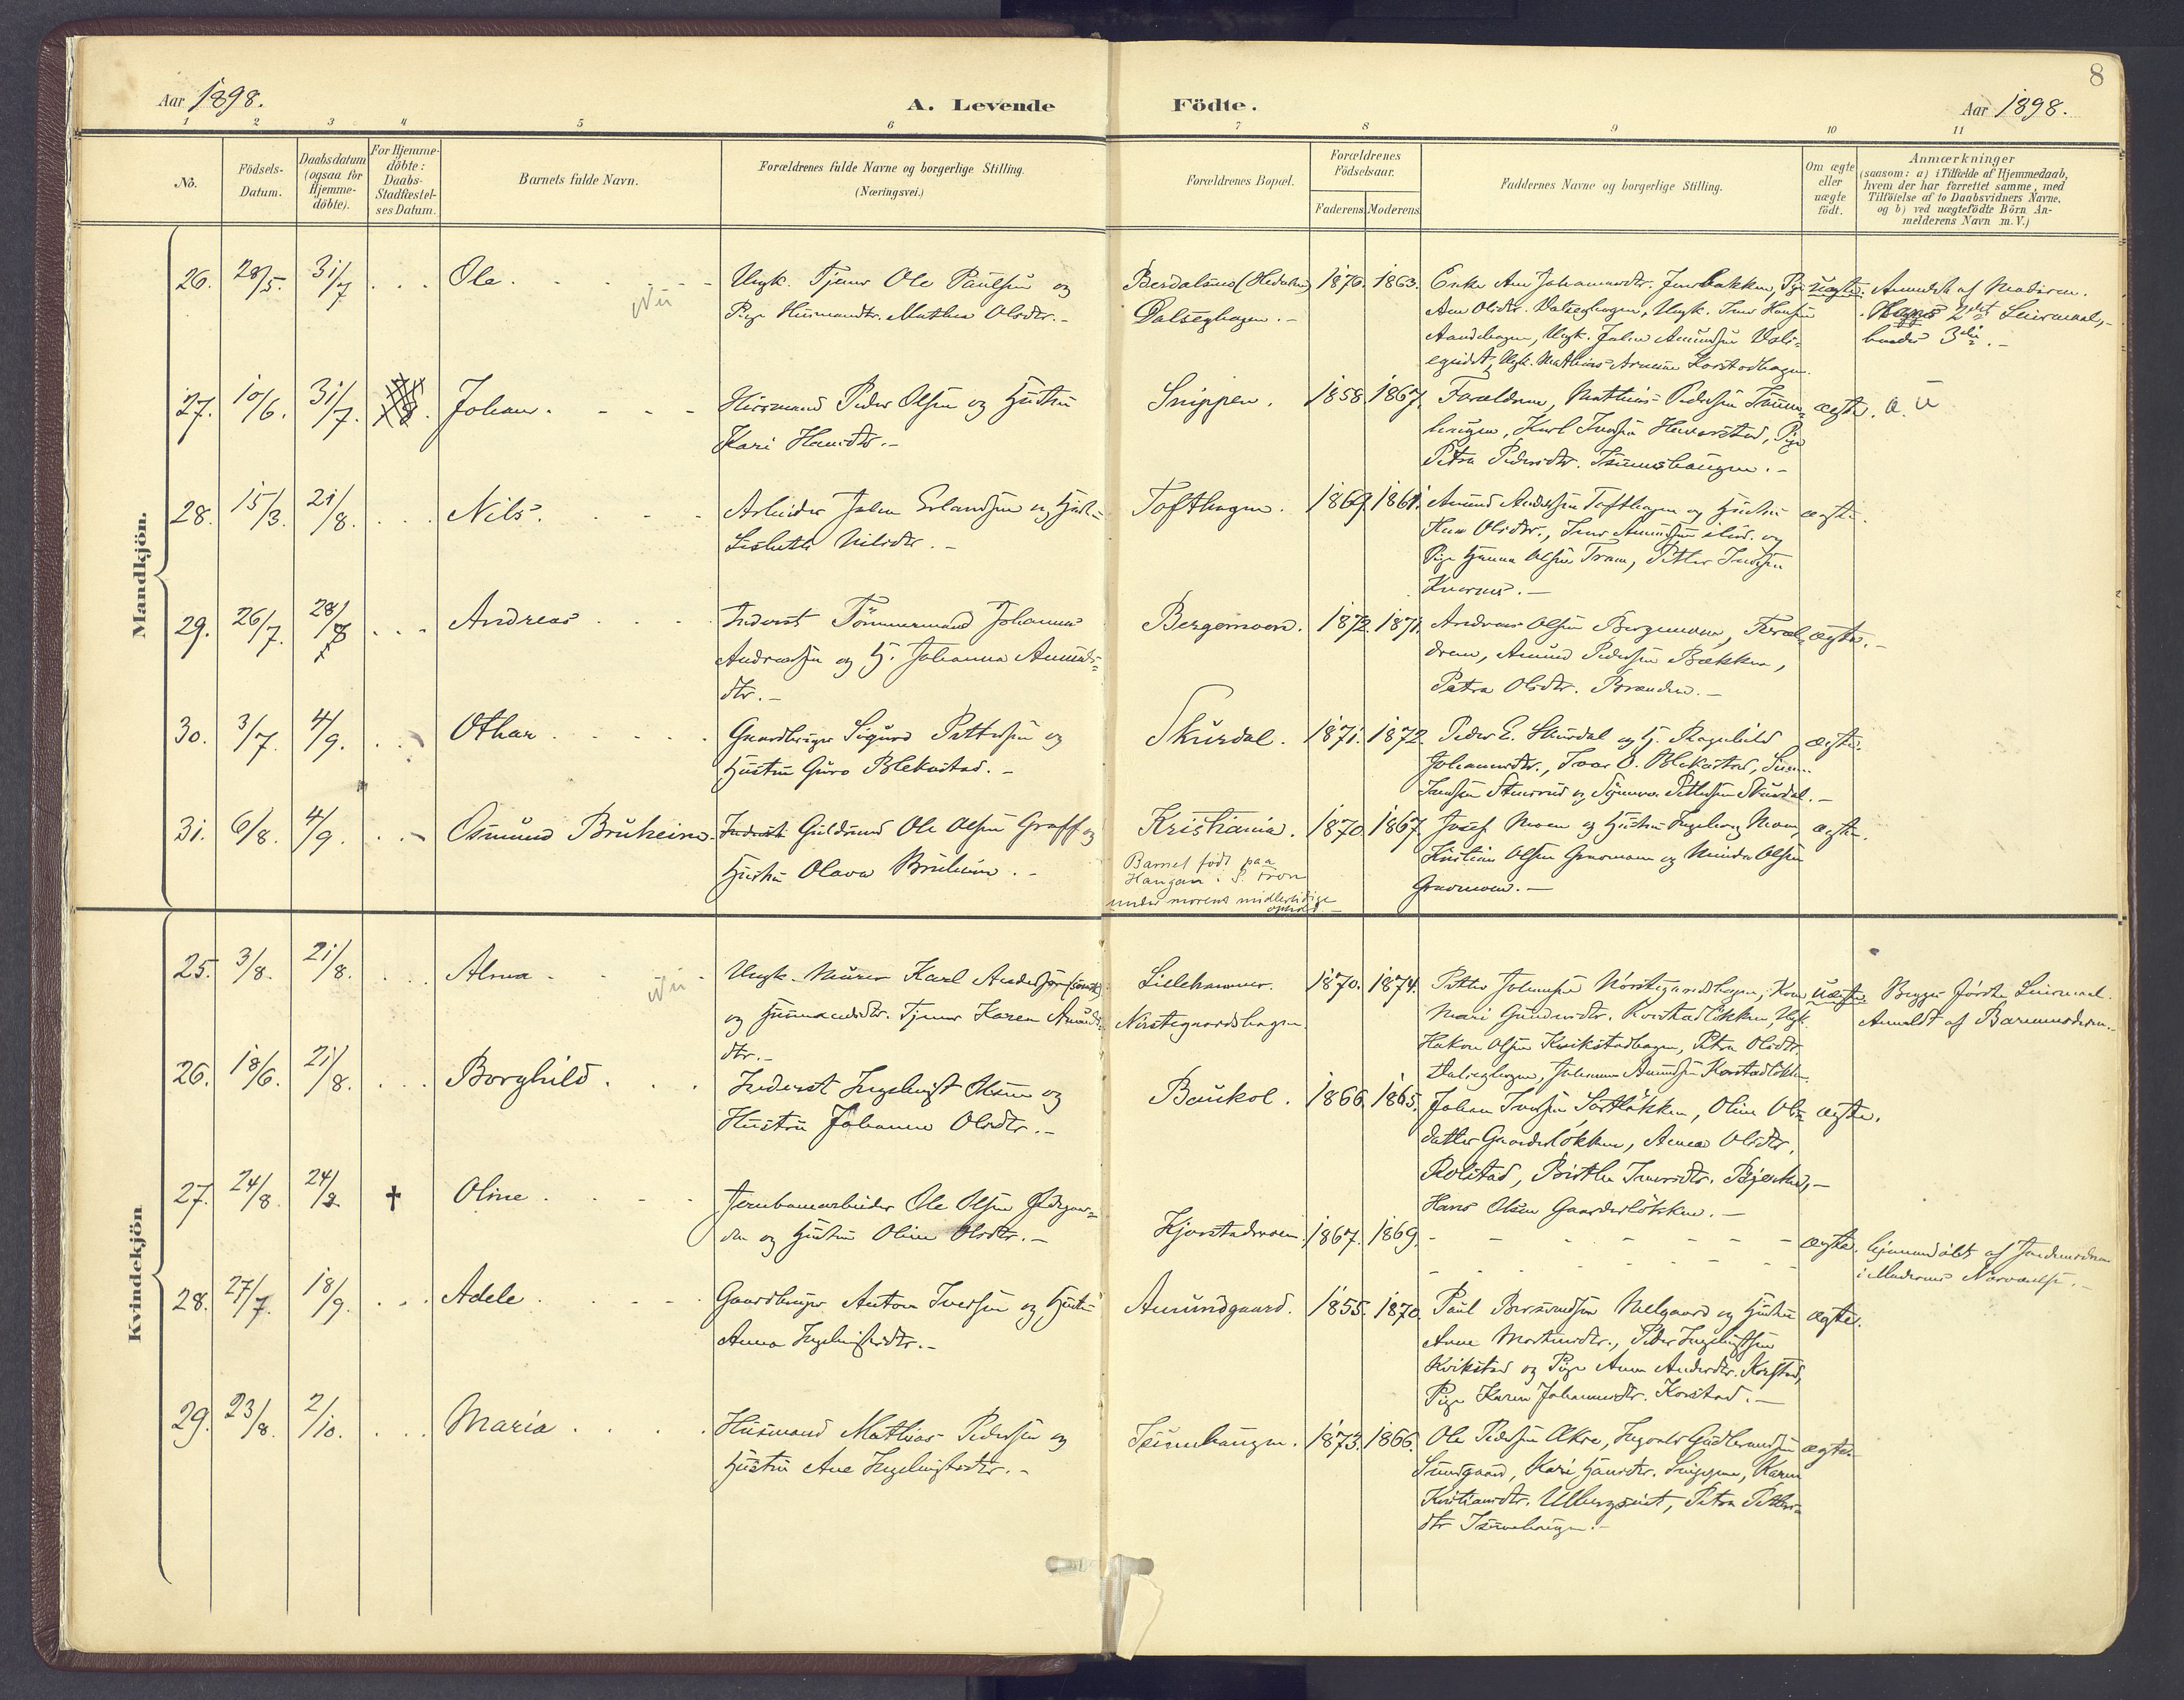 8
Aar 1898.
A. Levende Födte.
Aar 1898.
1 2 3 4 5 6 7 8 9 10 11
No.
Födsels-
Datum.
Daabsdatum
(ogsaa for
Hjemme-
döbte).
For Hjemme-
döbte:
Daabs-
Stadfæstel-
ses Datum.
Barnets fulde Navn.
Forældrenes fulde Navne og borgerlige Stilling.
(Næringsvei.)
Forældrenes Bopæl.
Forældrenes
Födselsaar.
Faderens Moderens
Faddernes Navne og borgerlige Stilling.
Om ægte
eller
uægte
födt.
Anmærkninger
(saasom: a) i Tilfælde af Hjemmedaab,
hvem der har forrettet samme, med
Tilföielse af to Daabsvidners Navne.
og b) ved uægtefödte Börn An-
melderens Navn m.V.)
Mandkjön.
26. 28/5. 31/7 Ole
Ungk. Tjener Ole Paulsen og
Pige Husmandsdtr. Mathea Olsdtr.
Dalseghagen.
1876. 1863.
Enke Ane Johannesdtr. Pige
Ane Olsdtr. Dalseghagen, Ungk. Iver Hansen
Ungk. Johan Amundsen
Ungk. Mathias Korstadhagen.
uægte.
Anmeldt af Moderen.
2det Leiermaal,
3die.
27. 10/6. 31/7. Johan.
Husmand Peder Olsen og Hustru
Kari Hansdtr.
Snippen.
1858. 1867.
Forældrene, Mathias Pedersen
Karl Iversen Pige
Petra Pedersdtr.
ægte.
28. 15/3. 21/8. Nils.
Arbeider Johan Erlandsen og Hustru
Lisbeth Nilsdtr.
Tofthagen.
1869. 1861.
Amund Andersen Tofthagen og Hustru
Olsdtr., Iver Amundsen og
Pige Hanna Olsen Petter
ægte.
29. 26/7. 28/8 Andreas
Inderst Tömmermand Johannes
Andreassen og H. Johanna Amunds-
dtr.
Bergemoen.
1872. 1871.
Andreas Olsen Bergemoen, Foræl-
drene, Amund Pedersen Bækken,
Petra Olsdtr. Brænden.
ægte.
30. 3/7. 4/9. Othar
Gaardbruger Sigurd Pettersen og
Hustru Guro Blekastad.
Skurdal.
1871. 1872.
Peder E. Skurdal og H. Ragnhild
Johannesdtr., Ivar O. Blekastad,
Stensrud og Pettersen Skurdal.
ægte.
31. 6/8. 4/9. Osmund Bruheim
Inderst Guldsmed Ole Olsen Graff og
Hustru Olava Bruheim.
Kristiania.
Barnet født paa
Haugan i S. Fron
under morens midlertidige
ophold.
1870. 1867.
Josef Moen og Hustru Ingeborg Moen,
Kristian Olsen Graomoen og Minda Olsen
Graomoen.
ægte.
Kvindekjön
25. 3/8. 21/8. Alma
Ungk. Murer Karl Andersson
og Husmandsdtr. Tjener Karen Amunds-
dtr.
Lillehammer.
Nerstegaardshagen.
1870. 1874.
Petter Johansen Nerstegaardshagen, Kone
Mari Gundersdtr. Korstadlökken, Ungk.
Hakon Olsen Kvikstadhagen, Petra Olsdtr.
Dalseghagen, Johannes Amundsen Korstadlökken.
uægte.
Begges første Leiermaal.
Anmeldt af Barnemoderen.
26. 18/6. 21/8. Borghild.
Inderst Ingebrigt Olsen og
Hustru Johanne Olsdtr.
Baukol.
1866. 1865.
Johan Iversen Oline Ols-
datter Gaarderlökken, Anna Olsdtr.
Rolstad, Birthe Iversdtr. Bjerke,
Hans Olsen Gaarderlökken.
ægte.
27. 24/8. 24/8 † Oline
Jernbanearbeider Ole Olsen
og Hustru Oline Olsdtr.
Kjorstadmoen.
1867. 1869.
ægte.
hjemmedöbt af Jordemoderen
i Moderens Nærværelse.
28. 27/7. 18/9. Adele
Gaardbruger Anton Iversen og Hustru
Anna Ingebrigtsdtr.
Amundgaard.
1855. 1870.
Paul Melgaard og Hustru
Anne Mortinsdtr., Peder Ingebrigtsen
Kvikstad og Pige Anna Andersdtr. Korstad,
Pige Karen Johannesdtr. Korstad.
ægte.
29. 23/8. 2/10. Maria
Husmand Mathias Pedersen og
Hustru Ane Ingebrigtsdtr.
1873. 1866.
Ole Pedersen Akre, Ingvald Gudbrandsen
Kari Hansdtr. Snippen, Karen
Kristiansdtr. Petra Petters-
dtr
ægte.